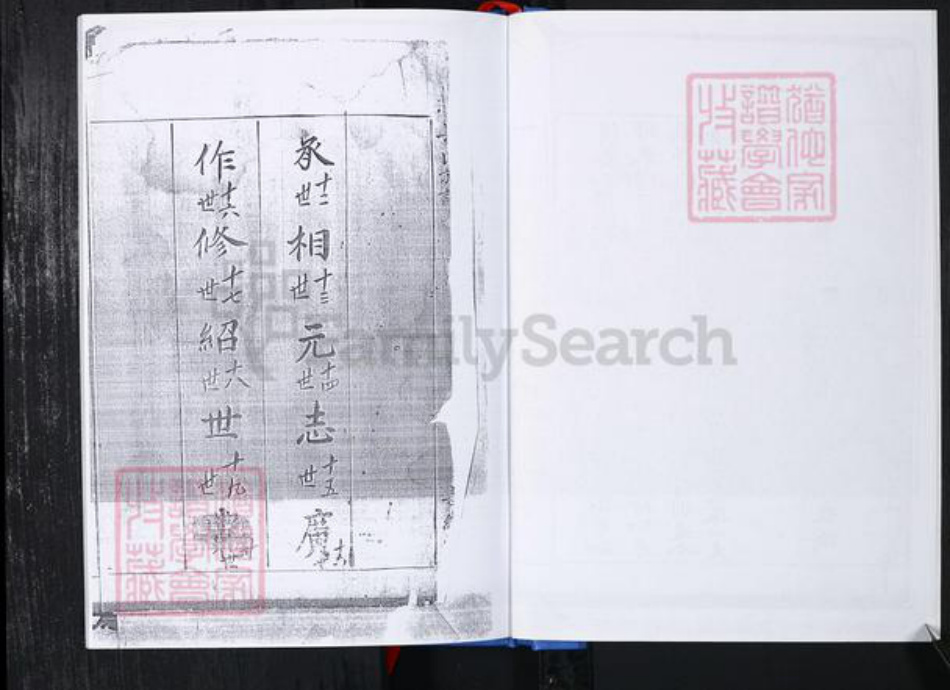 承十二世相十三世元十四世志十五世廣十六世
作十六世修十七世紹十八世世十九世
FamilySearch
猶他家譜學會收藏
猶他家譜學會收藏